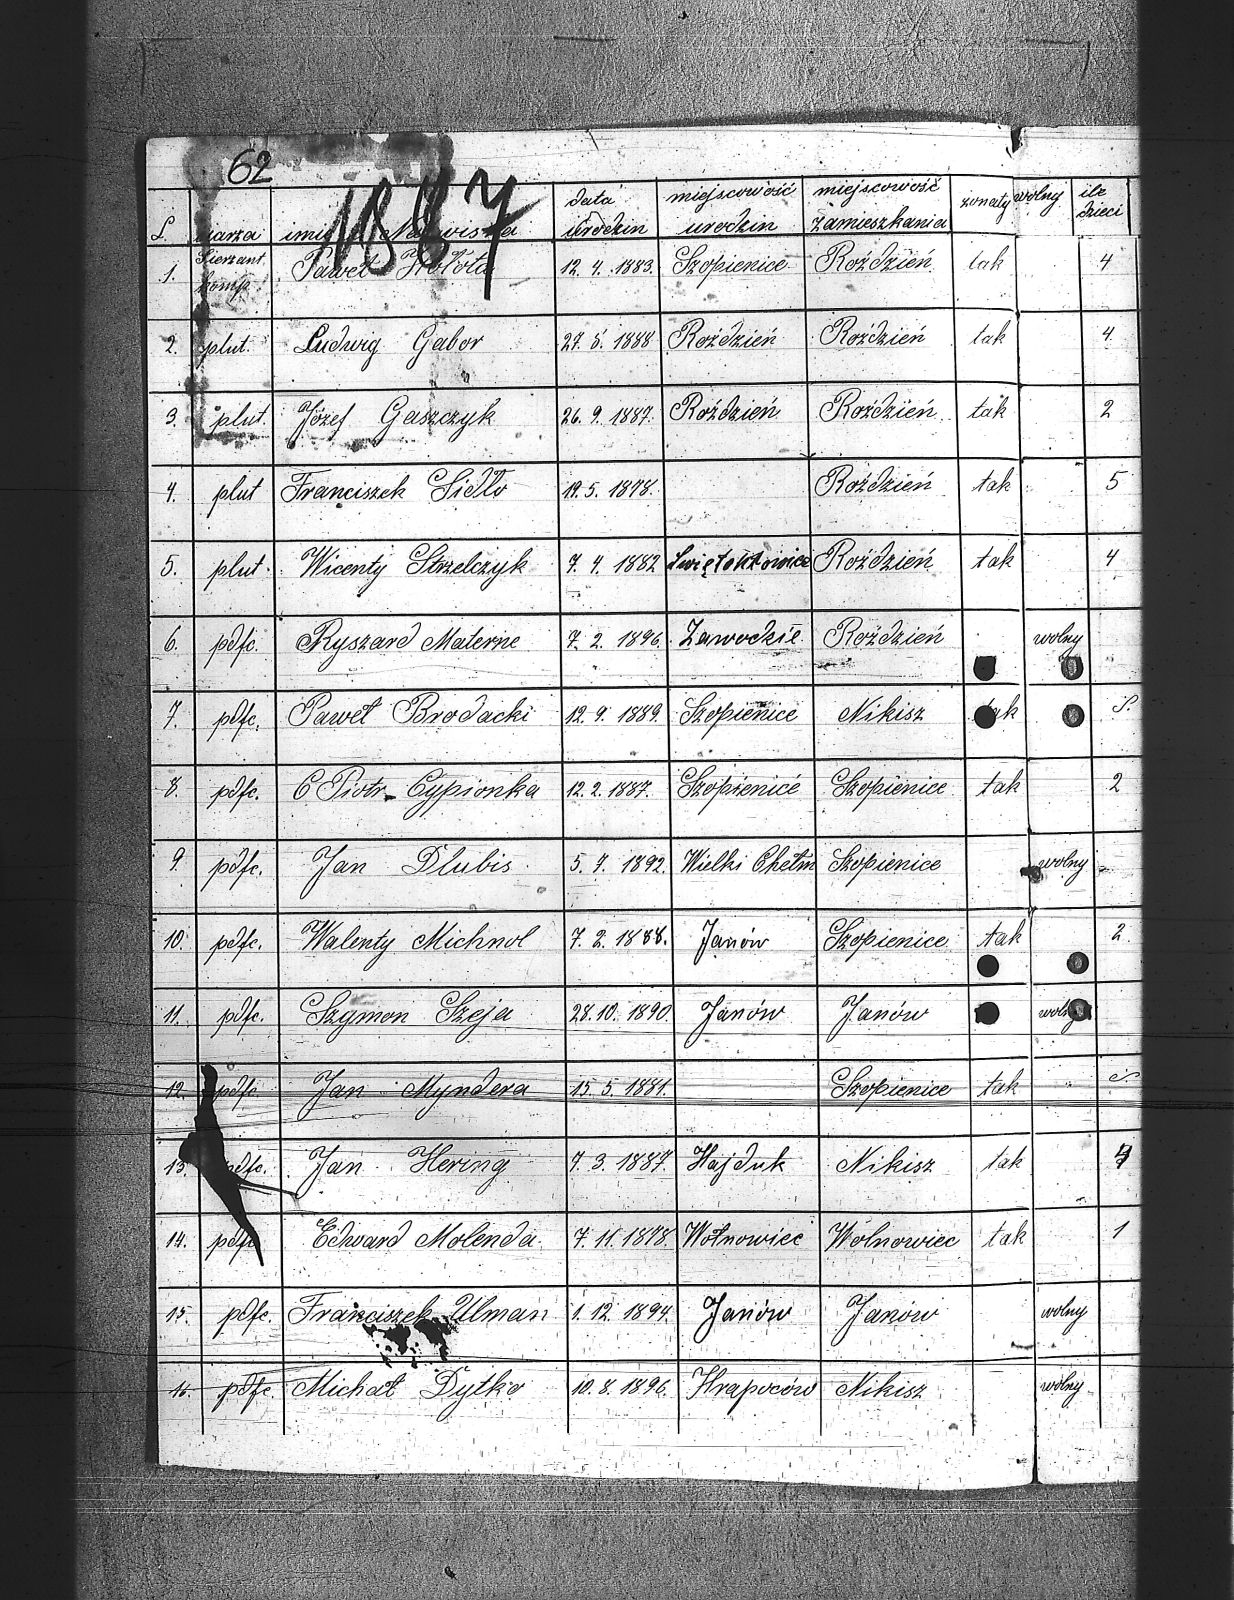 62
1887
L. szarża imię Nazwiska data urodzin miejscowość urodzin miejscowość zamieszkania żonaty wolny ile dzieci
1. Sierzant komp. Paweł Hołota 12. 4. 1883. Szopienice Roździeń tak 4
2. plut. Ludwig Gabor 27. 5. 1888 Roździeń Roździeń tak 4
3. plut. Józef Gaszczyk 26. 9. 1887. Roździeń Roździeń tak 2
4. plut Franciszek Sidło 19. 5. 1878. Roździeń tak 5
5. plut. Wicenty Strzelczyk 7. 4. 1882 Świętochłowice Roździeń tak 4
6. pdfc. Ryszard Materne 7. 2. 1896. Zawodzie Roździeń wolny
7. pdfc. Paweł Brodacki 12. 9. 1889. Szopienice Nikisz tak
8. pdfc. Piotr Cypionka 12. 2. 1887. Szopienice Szopienice tak 2
9. pdfc. Jan Dlubis 5. 7. 1892. Wielki Chełm Szopienice wolny
10. pdfc. Walenty Michnol 7. 2. 1888. Janów Szopienice tak 2
11. pdfc. Szymon Szeja 28. 10. 1890 Janów Janów wolny
12. pdfc. Jan Myndera 15. 5. 1881. Szopienice tak
13 pdfc. Jan Hering 7. 3. 1887. Hajduk Nikisz tak 4
14. pdfc Edward Molenda 7. 11. 1878. Wełnowiec Wełnowiec tak 1
15. pdfc. Franciszek Ulman 1. 12. 1894. Janów Janów wolny
16. pdfc Michał Dytko 10. 8. 1896. Nikisz wolny